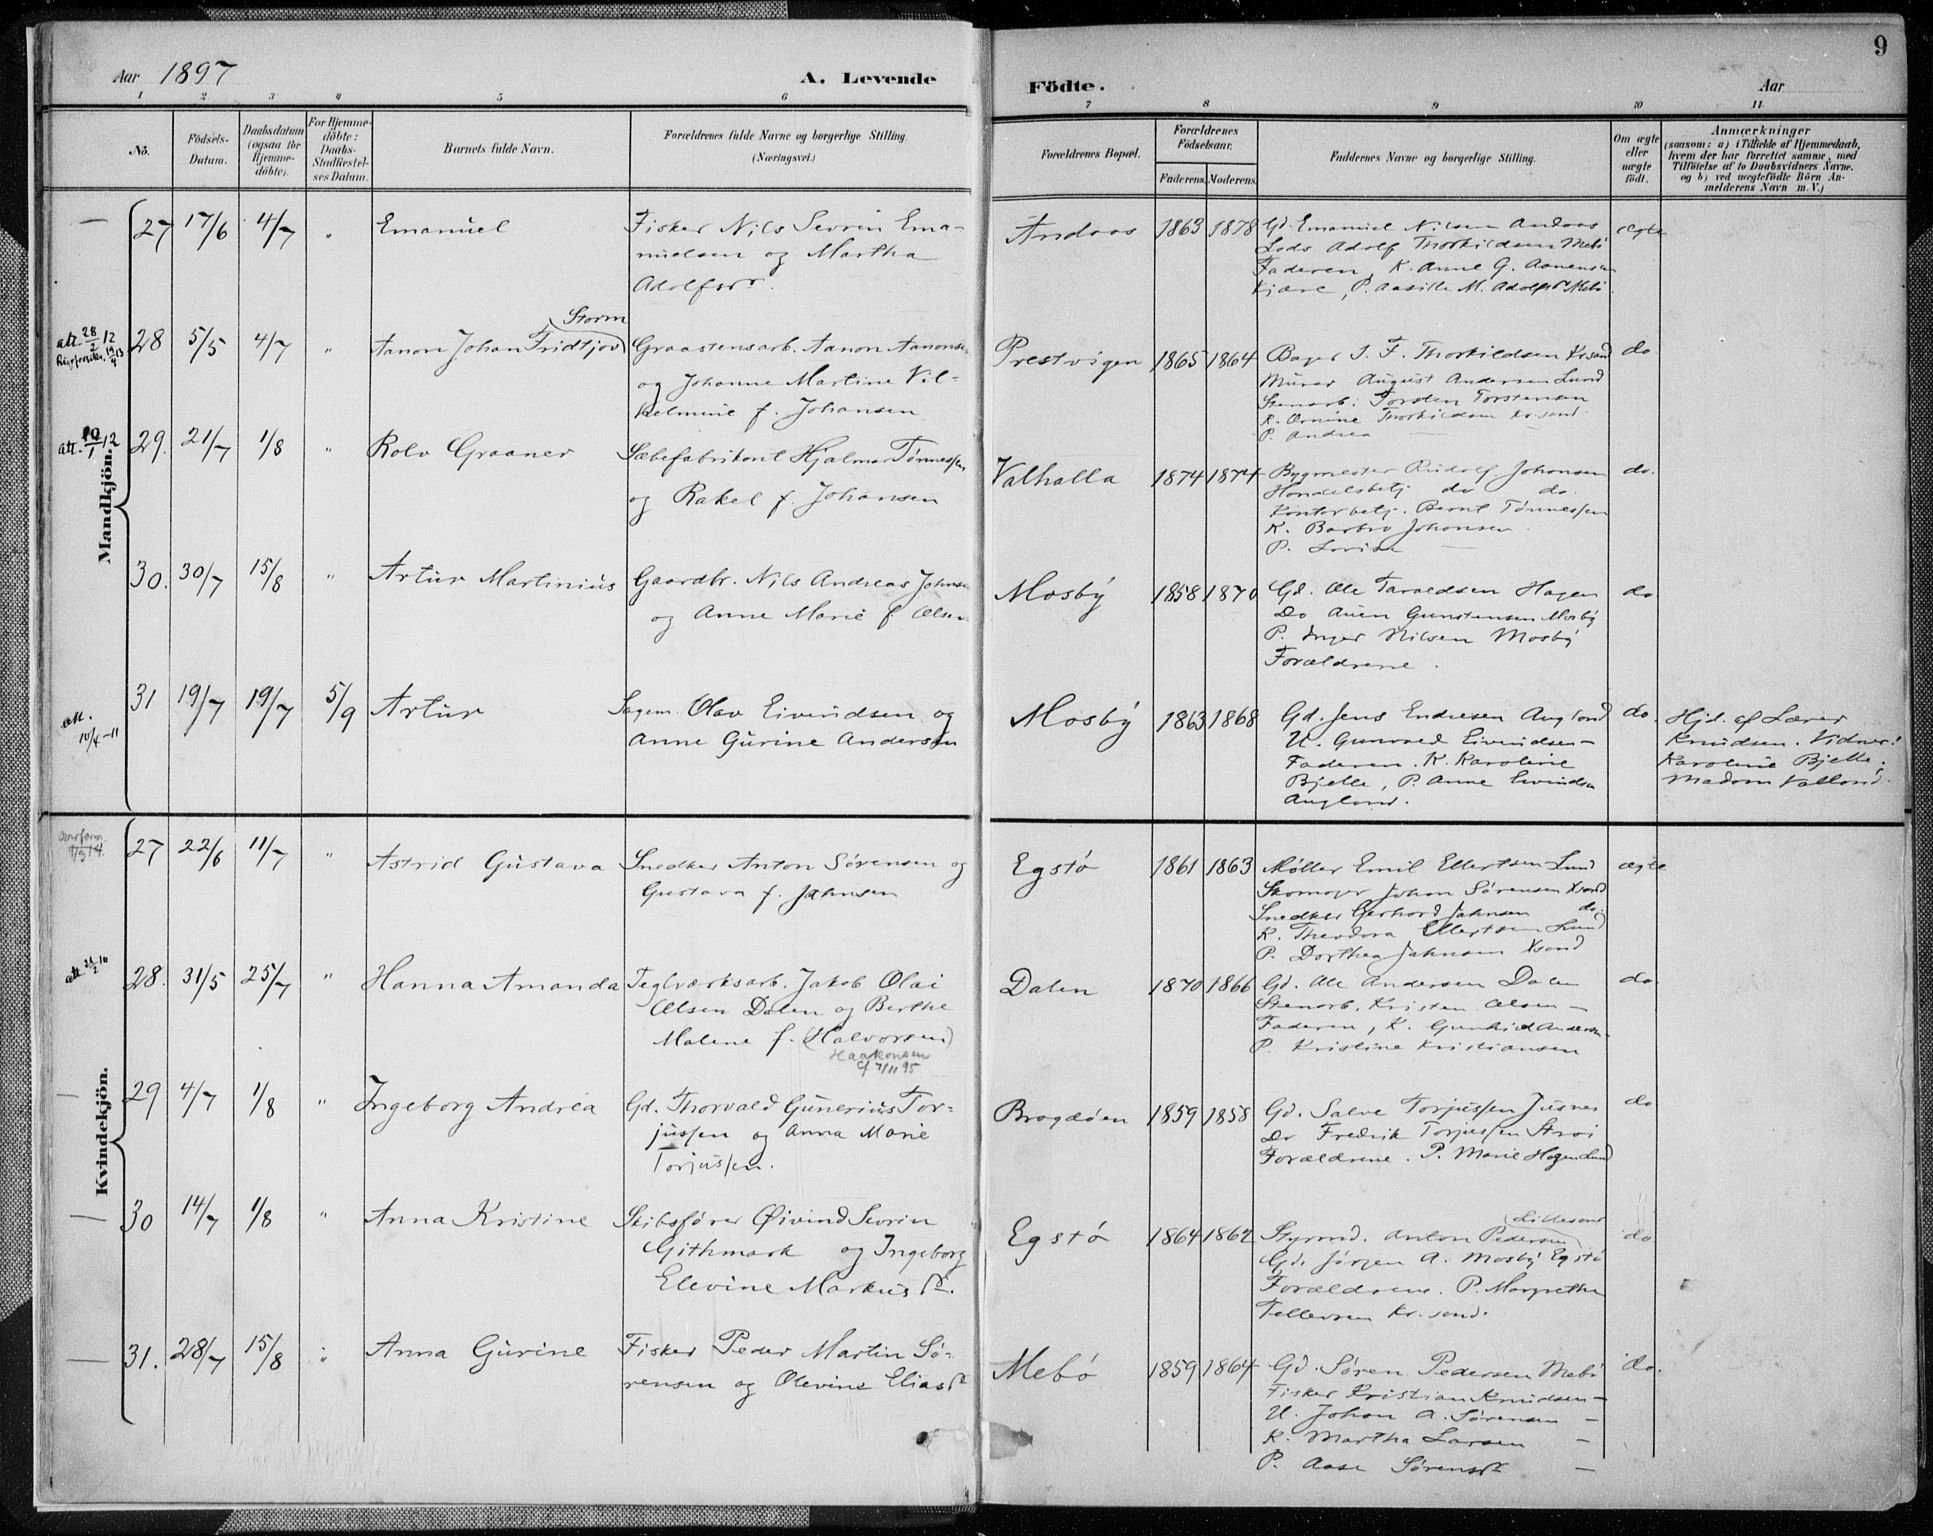 Aar 1897
A. Levende
Födte.
Aar
9
1 2 3 4 5 6 7 8 9 10 11
No.
Födsels-
Datum.
Daabsdatum
(ogsaa for
Hjemme-
döbte).
For Hjemme-
döbte:
Daabs-
Stadfæstel-
ses Datum.
Barnets fulde Navn.
Forældrenes fulde Navne og borgerlige Stilling.
(Næringsvei.)
Forældrenes Bopæl.
Forældrenes
Födselsaar.
Faderens. Moderens.
Faddernes Navne og borgerlige Stilling.
Om ægte
eller
uægte
födt.
Anmærkninger
(saasom: a) i Tilfælde af Hjemmedaab,
hvem der har forrettet samme, med
Tilföielse af to Daabsvidners Navne.
og b) ved uægtefödte Börn An-
melderens Navn m. V.)
Mandkjön.
— 27 17/6 4/7 " Emanuel
Fisker Nils Sevrin Ema-
nuelsen og Martha
Adolfsdr.
Andaas 1863 1878
Gd. Emanuel Nilsen Andaas
Lods Adolf Thorkildsen Mebö
Faderen, K. Anne G. Aanensen
Kjære, P. Aasille M. Adolfsdr Mebö
ægte
att. 28/2 12
28 5/5 4/7 " Storm
Aanon Johan Fridtjov
Graastensarb. Aanon Aanonsen
og Johanne Martine Vil-
helmine f. Johansen
Prestvigen 1865 1864
Bager J. F. Thorkildsen Krsand
Murer August Andersen Lund
Stenarb. Torsten Torstensen
K. Thorkildsen Kr.sand.
P. Andrea —
do
att. 10/1 12
29. 21/7 1/8 " Rolv Graaner
Sæbefabrikant Hjalmar Tönnessen
og Rakel f. Johansen
Valhalla 1874 1874
Bygmester Rudolf Johansen
Handelsbetj do do.
Kontorbetj. Bernt Tönnessen
K. Barbro Johansen
P. Lovise —
do.
30. 30/7 15/8 " Artur Martinius
Gaardbr. Nils Andreas Johnsen
og Anne Marie f Olsen
Mosby 1858 1870
Gd. Ole Taraldsen Hagen
Do Auen Gunstensen Mosby
P. Inger Nilsen Mosby
Forældrene.
do
att. 10/4-11
31 19/7 19/7 5/9 Artur
Sagm. Olav Eivindsen og
Anne Gurine Andersen
Mosby 1863 1868
Gd. Jens Endresen Augland
U. Gunvald Eivindsen —
Faderen. K. Karoline
Bjelle, P. Anne Eivindsen
Augland.
do.
Hjd. af Lærer
Knudsen. Vidner:
Karoline Bjelle.
Madam Valland.
Kvindekjön.
27 22/6 11/7 " Astrid Gustava
Snedker Anton Sörensen og
Gustava f. Jahnsen
Egstö 1861 1863
Möller Emil Ellertsen Lund
Skomager Johan Sörensen Xsand
Snedker Gerhard Jahnsen do.
K. Theodora Ellertsen Lund
P. Dorthea Jahnsen Xsand
ægte
28. 31/5 25/7 " Hanna Amanda
Teglværksarb. Jakob Olai
Olsen Dalen og Berthe
Malene f. (Halvorsen)
Haakonsen
cf 7/11 95
Dalen 1870 1866
Gd. Ole Andersen Dalen
Stenarb. Kristen Olsen —
Faderen, K. Gunhild Andersen
P. Kristine Kristiansen
do
— 29 4/7 1/8 " Ingeborg Andrea
Gd. Thorvald Gunerius Tor-
jussen og Anna Marie
Torjussen.
Bragdöen 1859 1858
Gd. Salve Torjussen Jusnes
Do Fredrik Torjussen Stroi
Forældrene. P. Marie Hagen Lund
do
— 30 14/7 1/8 " Anna Kristine
Skibsförer Öivind Sevrin
Githmark og Ingeborg
Elevine Markusdr.
Egstö 1864 1862
Lillesand
Styrmd. Anton Pedersen
Gd. Jörgen A. Mosby Egstö
Forældrene. P. Margrethe
Tellevsen Kr.sand.
do
— 31. 28/7 15/8 " Anna Gurine
Fisker Peder Martin Sö-
rensen og Olevine Eliasdr
Mebö 1859 1864
Gd. Sören Pedersen Mebö
Fisker Kristian Knudsen —
U. Johan A. Sörensen —
K. Martha Larsen —
P. Aase Sörensdr —
do.